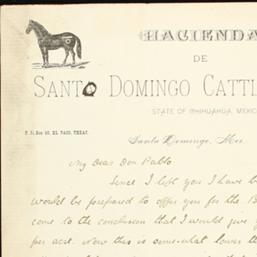 HACIENDA
DE
SANTO DOMINGO CATTL
STATE OF CHIHUAHUA, MEXIC
P. O. Box 62, EL PASO, TEXAS.
Santo Domingo, Mex.
My Dear Don Pablo
Since I left you I have b
would be prepared to offer you for the B
come to the conclusion that I would give y
per acre. Now this is some-what lower th